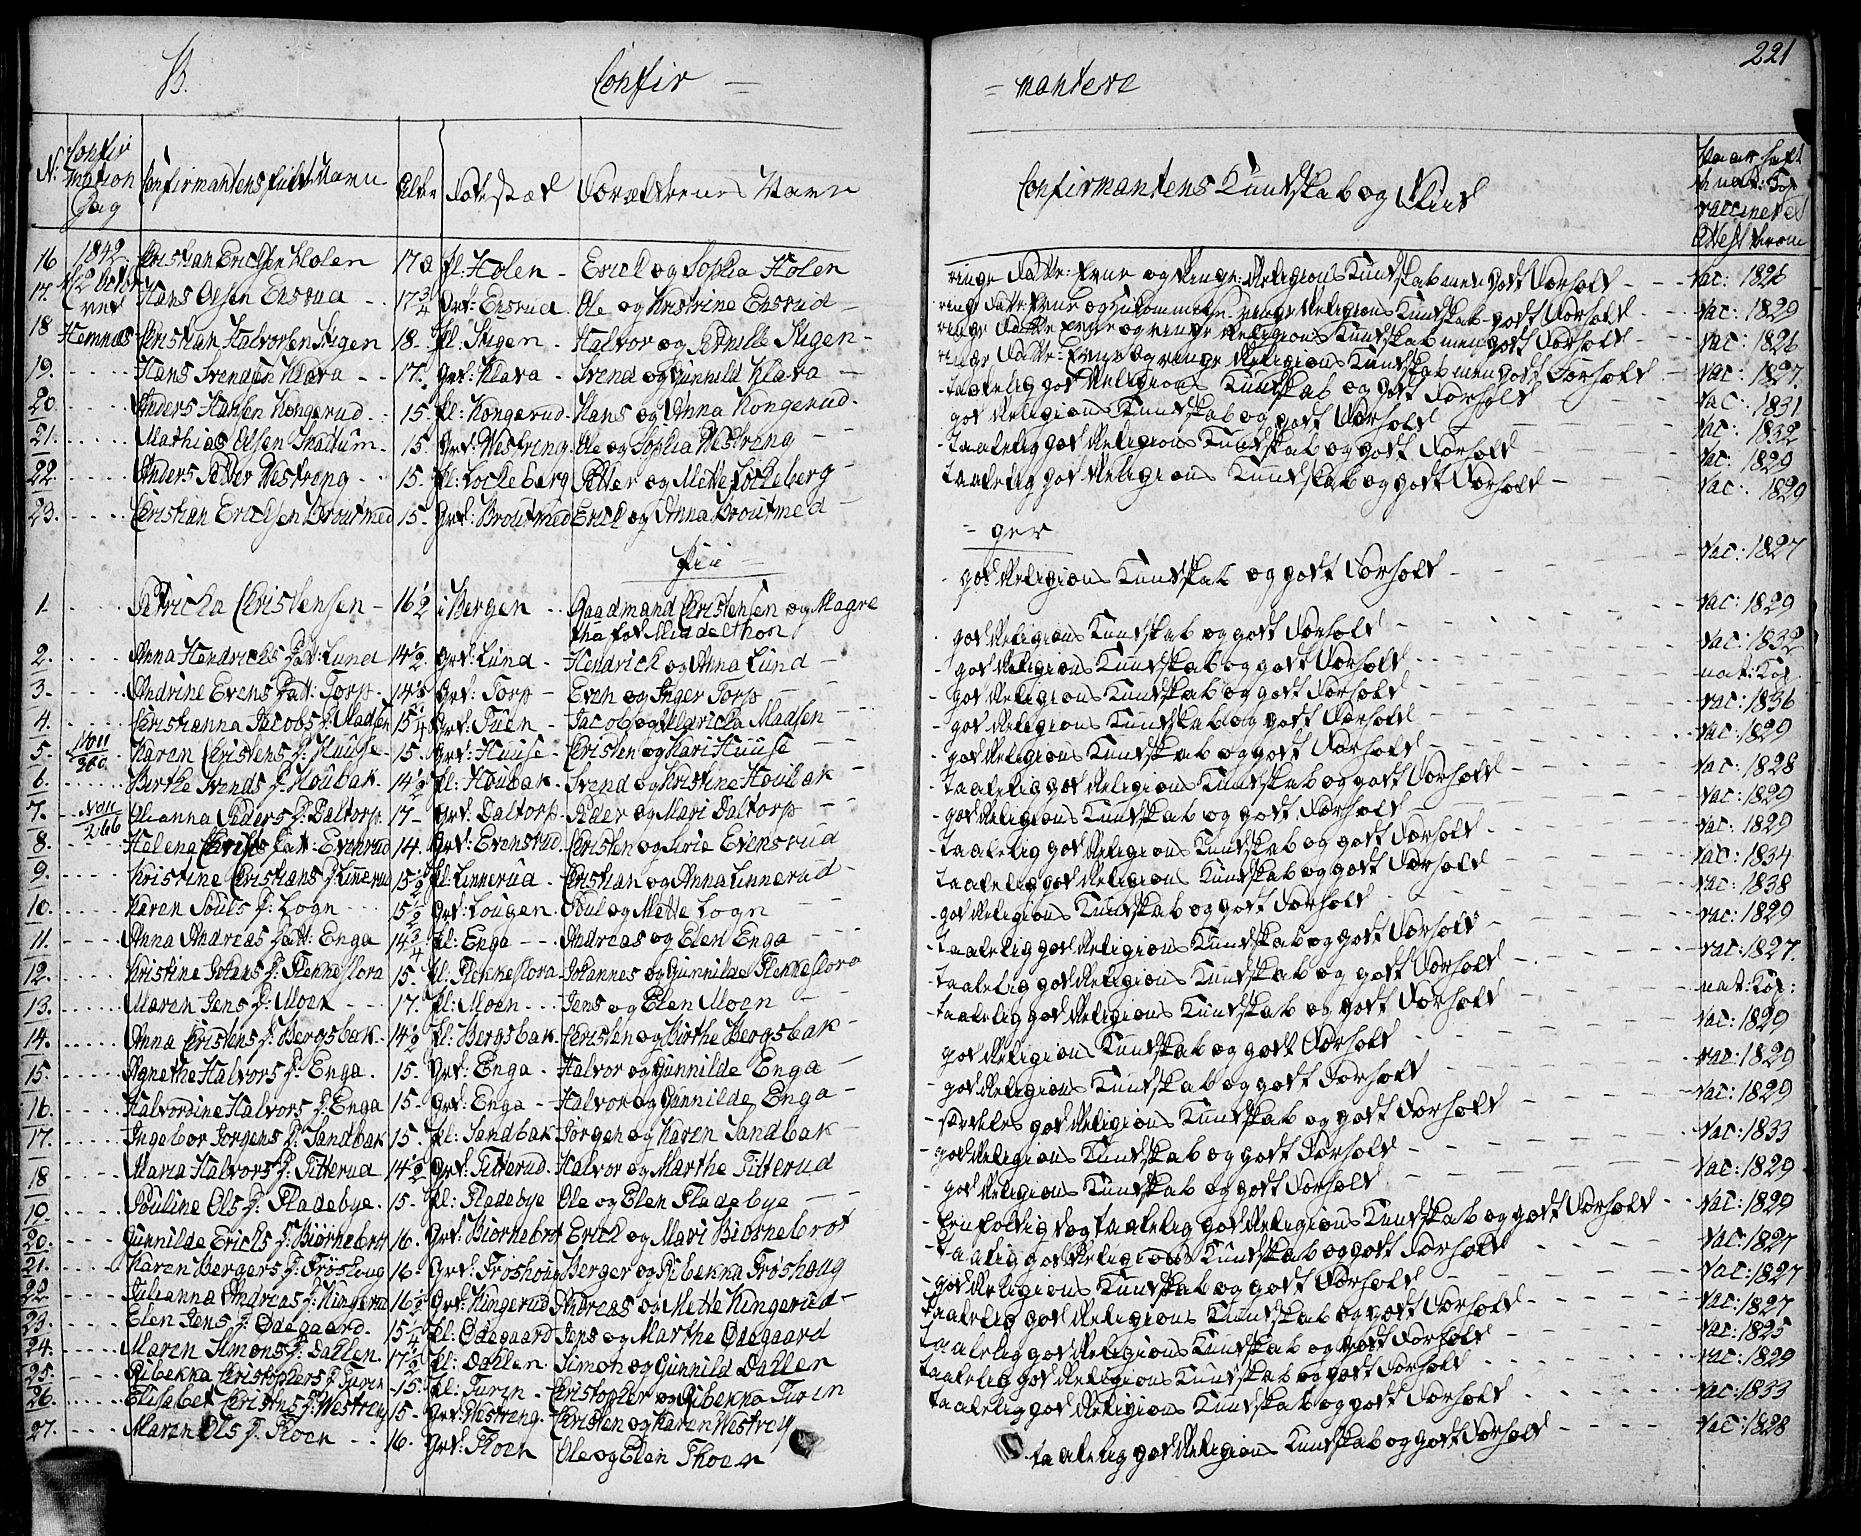 B. Confir = = mantere 221
N: Confir mation Dag Confirmantens fulde Navn Alder Fødested Forældrenes Navn Confirmantens Kundskab og Flid
16 1842 Christian Ericksen Holen 17 a pl: Holen - Erick og Sophia Holen ringe Religions Kundskab men godt Forhold - Vac: 1826
17. Hans Olsen Ensrud 17 3/4 Grd: Ensrud. Ole og Kristine Ensrud - Religions Kundskab godt Forhold - Vac: 1829
18 Hemnæs Christian Halvorsen Stigen 18. pl. Stigen - Halvor og Pernille Stigen - Religions Kundskab men godt Forhold - Vac: 1826
19. Hans Svendsen Klava 17. Grd: Klava - Svend og Gunnild Klava - Religions Kundskab men godt Forhold Vac: 1827.
20. Anders Hansen Kongerud. 15. pl: Kongerud. Hans og Anna Kongerud. taalelig god Religions Kundskab og godt Forhold Vac: 1831
21. Mathias Olsen 15. Grd: Westreng. Ole og Sophia Westreng god Religions Kundskab og godt Forhold Vac: 1832
22. Anders Peder Westreng 15. pl: Lockeberg Petter og Mette Lockeberg taalelig god Religions Kundskab og godt Forhold Vac: 1829
23. Christian Ericksen Broutmed 15. Grd: Broutmed Erick og Anna Broutmed taalelig god Religions Kundskab og godt Forhold Vac: 1829
Pii - - ger
1. Petricka Christensen - 16 1/2 i Bergen Raadmand Christensen og Magre god Religions Kundskab og godt Forhold Vac: 1827
tha fød Middelthon
2. Anna Hendricks Dat: Lund 14 1/2 Grd: Lund - Hendrick og Anna Lund god Religions Kundskab og godt Forhold Vac: 1829
3. Andrine Evens Dat: Torp. 14 1/2 Grd: Torp - Even og Inger Torp god Religions Kundskab og godt Forhold Vac: 1832
4. Christianna Jacobs D: Madsen 15 1/4 Grd: Tuen - Jacob og Maricka Madsen god Religions Kundskab og godt Forhold nat: Kop
5. Non 260 Karen Christens D: Huuse 15. Grd: Huuse - Christen og Mari Huuse god Religions Kundskab og godt Forhold Vac: 1836
6. Birthe Svends D: Houbak 14 1/2 pl: Houbak Svend og Kristine Houbak god Religions Kundskab og godt Forhold Vac: 1829
7. Non 266 Olianna Peders D: Daltorp 17 - Grd: Daltorp. Peder og Mari Daltorp taalelig god Religions Kundskab og godt Forhold Vac: 1828
8. Helena Christs Dat: Evenrud 14. Grd: Evensrud Christen og Sirie Evensrud god Religions Kundskab og godt Forhold Vac: 1829
9. Kristine Christians D: Linnerud 15 1/2 pl: Linnerud Christian og Anna Linnerud taalelig god Religions Kundskab og godt Forhold Vac: 1829
10. Karen Pouls D: Logn 15 1/2 Grd: Lougen. Poul og Mette Logn taalelig god Religions Kundskab og godt Forhold Vac: 1834
11. Anna Andreas Dat: Enga 14 3/4 pl: Enga Andreas og Elen Enga god Religions Kundskab og godt Forhold Vac: 1838
12. Kristine Johans D: Flenkeslora 15. pl: Flenkeslora Johannes og Gunnilde Flenkeslora taalelig god Religions Kundskab og godt Forhold Vac: 1829
13. Maren Jens D: Moen 17. pl: Moen Jens og Elen Moen taalelig god Religions Kundskab og godt Forhold Vac: 1827.
14. Anna Christens D: Bergsbak 14 1/2 pl: Bergsbak. Christen og Birthe Bergsbak taalelig god Religions Kundskab og godt Forhold nat: Kop:
15. Agnethe Halvors D: Enga. 15. Grd: Enga - Halvor og Gunnilde Enga god Religions Kundskab og godt Forhold Vac: 1829
16. Halvordine Halvors D: Enga 15. Grd: Enga Halvor og Gunnilde Enga god Religions Kundskab og godt Forhold Vac: 1829
17. Ingebor Jorgens D: Sandbak 15. pl: Sandbak Jorgen og Karen Sandbak særdeles god Religions Kundskab og godt Forhold Vac: 1829
18 Maria Halvors D: Titterud 14 1/2 Grd: Titterud. Halvor og Marthe Titterud god Religions Kundskab og godt Forhold Vac: 1833
19. Pouline Ols D: Fladebye. 15. pl: Fladebye Ole og Elen Fladebye god Religions Kundskab og godt Forhold Vac: 1829
20. Gunnilde Ericks D: Biørnebrot 16. Grd: Biørnebrot Erick og Mari Biørnebrot Enfoldig dog taalelig god Religions Kundskab og godt Forhold Vac: 1829
21. Karen Bergers D: Frøshoug 16. Grd: Frøshoug Berger og Ribekka Frøshoug taalelig god Religions Kundskab og godt Forhold Vac: 1827
22. Julianna Andreas D: Kingerud 16 1/2 Grd: Kingerud Andreas og Mette Kingerud god Religions Kundskab og godt Forhold Vac: 1827
23. Elen Jens D: Ødegaard. 15 1/4 pl: Ødegaard Jens og Marthe Ødegaard taalelig god Religions Kundskab og godt Forhold Vac: 1827
24. Maren Simons D: Dahlen 17 1/2 pl: Dahlen Simon og Gunnild Dahlen taalelig god Religions Kundskab og godt Forhold Vac: 1825
25. Ribekka Christophers D: Turin 15. pl: Turin Christopher og Ribekka Turin taalelig god Religions Kundskab og godt Forhold Vac: 1829
26. Elisabet Christens D: Westreng 15. Grd: Westreng. Christen og Karen Westreng taalelig god Religions Kundskab og godt Forhold Vac: 1833
27. Maren Ols D: Thoen 16. Grd: Thoen Ole og Elen Thoen taalelig god Religions Kundskab og godt Forhold Vac: 1828